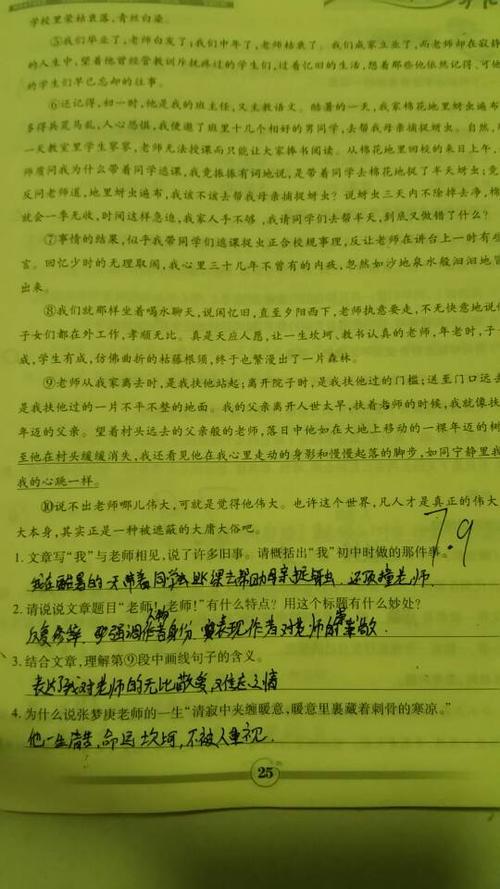 学校里荣枯衰落，青丝白染。
⑤我们毕业了，老师白发了；我们中年了，老师枯衰了。我们成家立业了，而老师却在寂静
的人生中，望着他曾经管教训斥抚疼过的学生们，过着忆旧的生活，想着那些他依然记得、可他
的学生们早已忘却的往事。
⑥还记得，初一时，他是我的班主任，又主教语文。酷暑的一天，我家棉花地里蚜虫遍布
多得兵荒马乱，人心恐惧，我便邀了班里十几个相好的男同学，去帮我母亲捕捉蚜虫。自然，
一天教室里学生寥寥，老师无法授课而只能让大家捧书阅读。从棉花地里回校的来日上午，
师质问我为什么带着同学逃课，我竟振振有词地说，是带着同学去棉花地捉了半天蚜虫；竟
反问老师道，地里蚜虫遍布，我该不该去帮我母亲捕捉蚜虫？说蚜虫三天内不除掉去净，棉
就会一季无收，时间这样急迫，我家人手不够，我请同学们去帮半天，到底又做错了什么？
⑦事情的结果，似乎我带同学们逃课捉虫正合校规事理，反让老师在讲台上一时有些
言。回忆少时的无理取闹，我心里三十几年不曾有的内疚，忽然如沙地泉水般汩汩地冒
出来。
⑧我们就那样坐着喝水聊天，说闲忆旧，直至夕阳西下，老师执意要走，不无快意地说他
子女们都在外工作，孝顺无比。真是天应人愿，让一生坎坷、教书认真的老师，年老时，子
成，学生有成，仿佛曲折的枯藤根须，终于也繁漫出了一片森林。
⑨老师从我家离去时，是我扶他站起；离开院子时，是我扶他过的门槛；送至门口远去
是我扶他过的一片不平不整的地面。我的父亲离开人世太早，扶着老师的时候，我就像扶
年迈的父亲。望着村头远去的父亲般的老师，落日中他如在大地上移动的一棵年迈的树
至他在村头缓缓消失，我还看见他在我心里走动的身影和慢慢起落的脚步，如同宁静里我
我的心跳一样。
⑩说不出老师哪儿伟大，可就是觉得他伟大。也许这个世界，凡人才是真正的伟大
大本身，其实正是一种被遮蔽的大庸大俗吧。
7.9
1. 文章写“我”与老师相见，说了许多旧事。请概括出“我”初中时做的那件事。
我在酷暑的一天带着同学去逃课去帮助母亲捉蚜虫，还顶撞老师.
2. 请说说文章题目“老师！老师！”有什么特点？用这个标题有什么妙处？
反复修辞，强调作者身份，表现作者对老师的崇敬
3. 结合文章，理解第⑨段中画线句子的含义。
表达了我对老师的无比敬爱，
4. 为什么说张梦庚老师的一生“清寂中夹缠暖意，暖意里裹藏着刺骨的寒凉。”
他一生，命运坎坷，不被人重视.
25